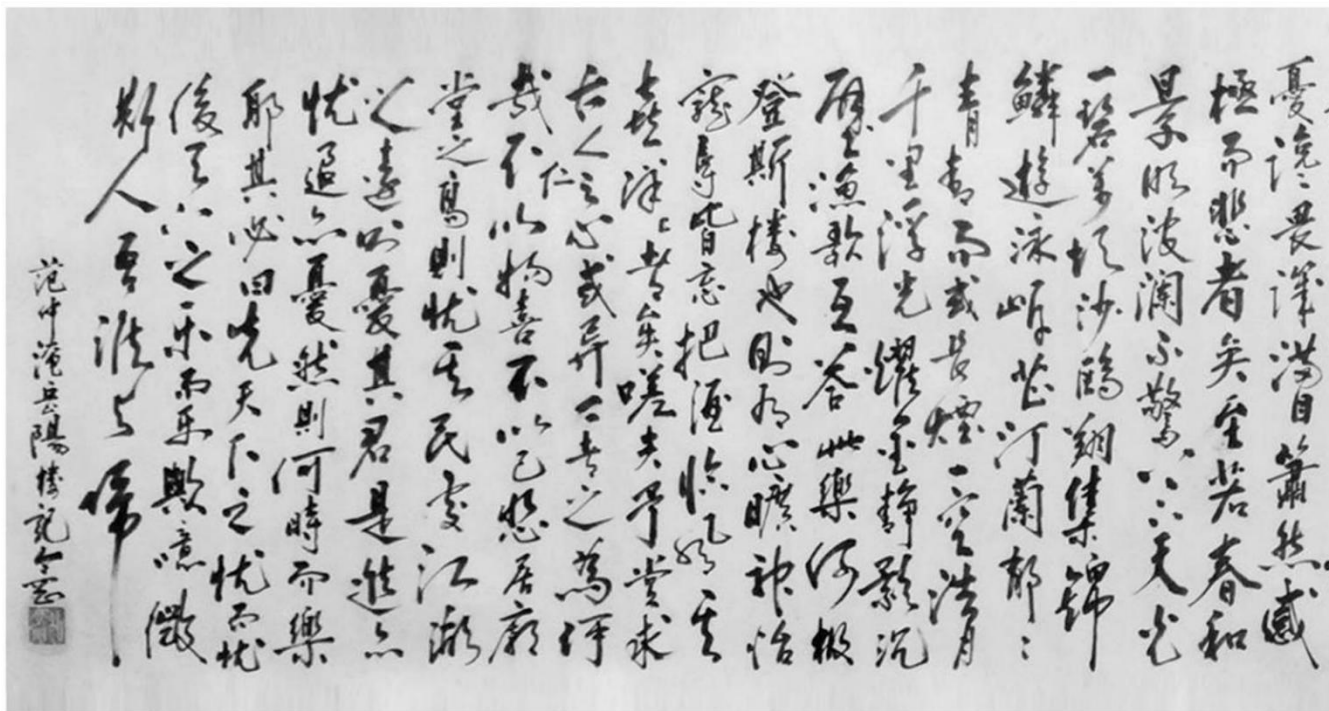 憂讒畏譏滿目蕭然感
極而悲者矣至若春和
景明波瀾不驚上下天光
一碧萬頃沙鷗翔集錦
鱗遊泳岸芷汀蘭郁〻
青青而或長煙一空浩月
千里浮光耀金靜影沉
璧漁歌互答此樂何極
登斯樓也則有心曠神怡
寵辱皆忘把酒臨風其
喜洋〻者矣嗟夫予嘗求
古仁人之心或異二者之為何
哉不以物喜不以己悲居廟
堂之高則忧其民處江湖
之遠則憂其君是進亦
忧退亦憂然則何時而樂
耶其必曰先天下之忧而忧
後天下之樂而樂歟噫微
斯人吾誰與歸
范仲淹岳陽樓記